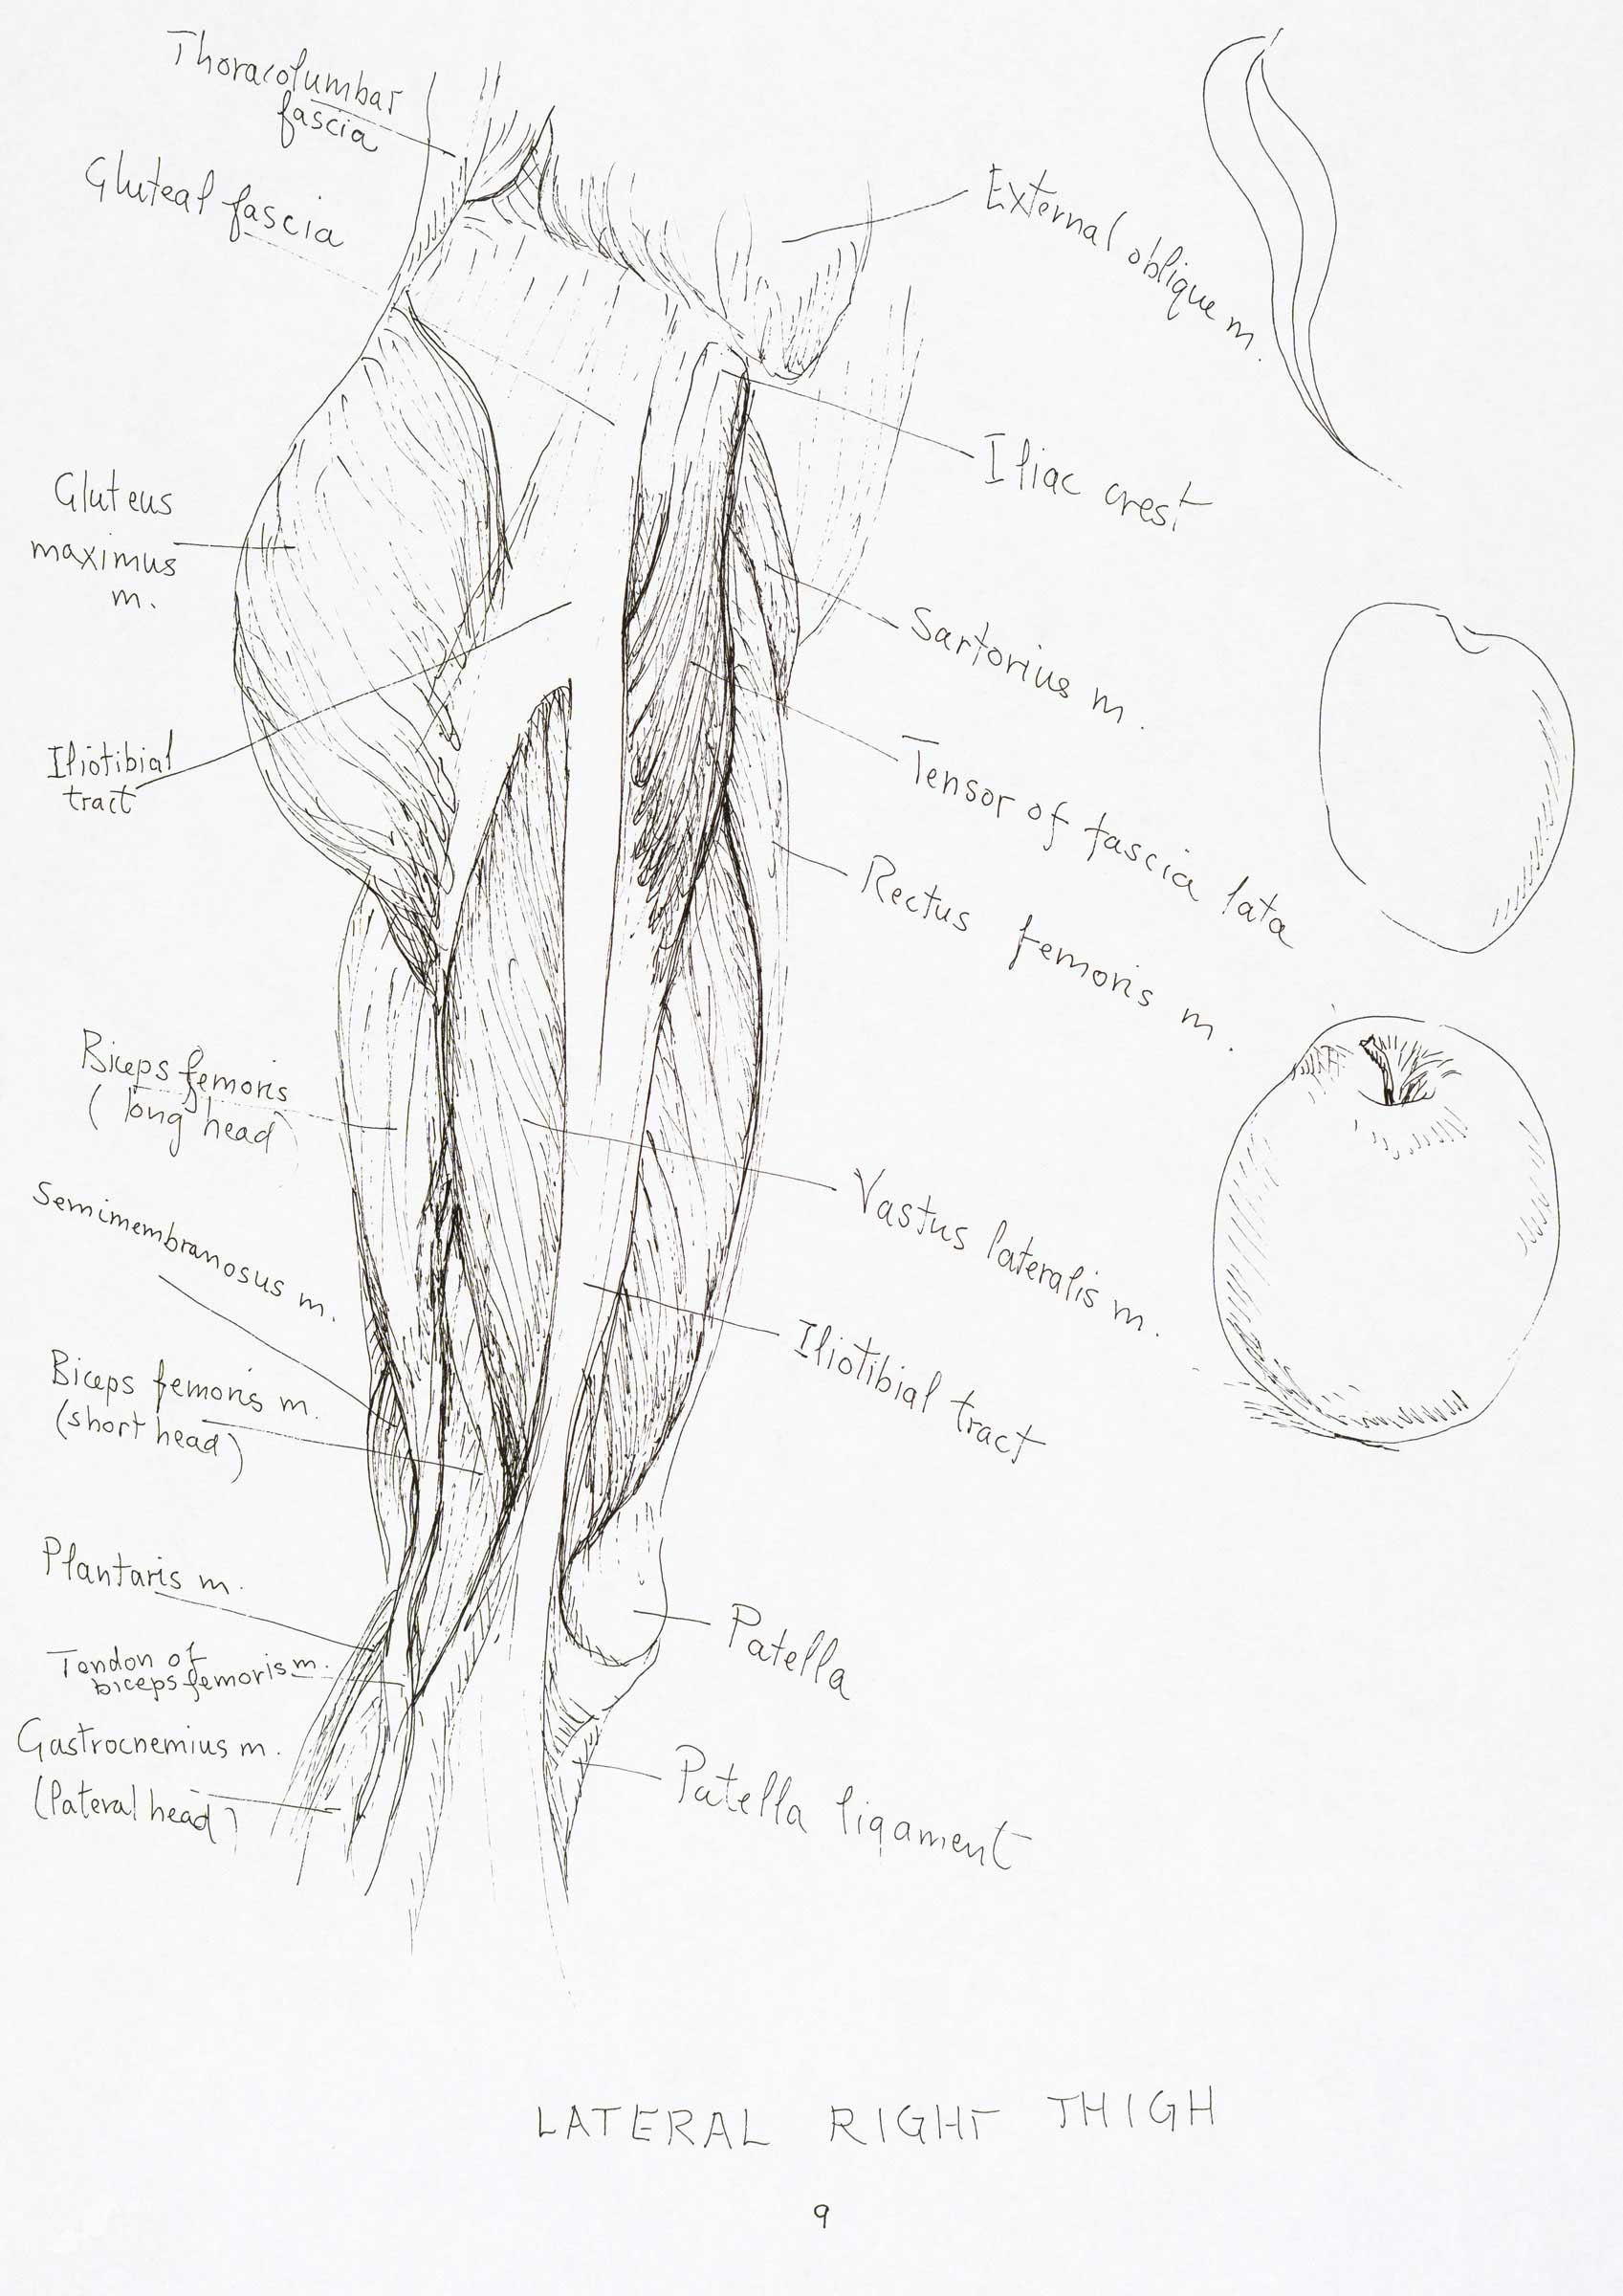 Thoracolumbar
fascia
Gluteal fascia
Gluteus
maximus
m.
Iliotibial
tract
Biceps femoris
(long head)
Semimembranosus m.
Biceps femoris m.
(short head)
Plantaris m.
Tendon of
biceps femoris m.
Gastrocnemius m.
(lateral head)
External oblique m.
Iliac crest
Sartorius m.
Tensor of fascia lata
Rectus femoris m.
Vastus lateralis m.
Iliotibial tract
Patella
Patella ligament
LATERAL RIGHT THIGH
9